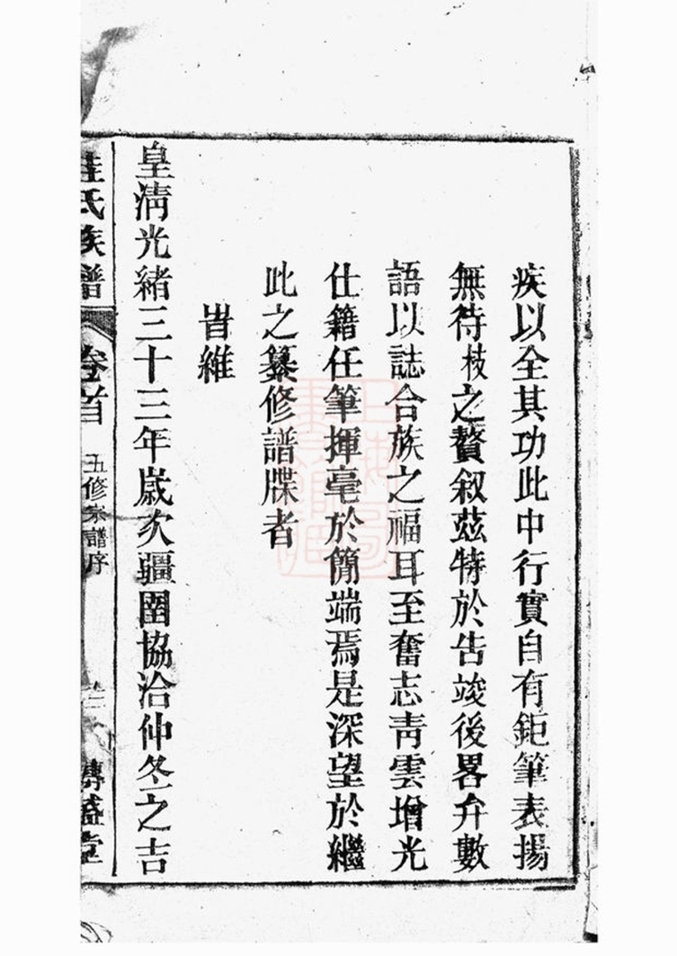 疾以全其功此中行實自有鉅筆表揚
無待枝之贅叙茲特於告竣後畧弁數
語以誌合族之福耳至奮志青雲增光
仕籍任筆揮毫於簡端焉是深望於繼
此之纂修譜牒者
旹維
皇清光緒三十三年嵗次疆圉協洽仲冬之吉
氏族譜
卷首
五修宗譜序
傳盛堂
上海圖